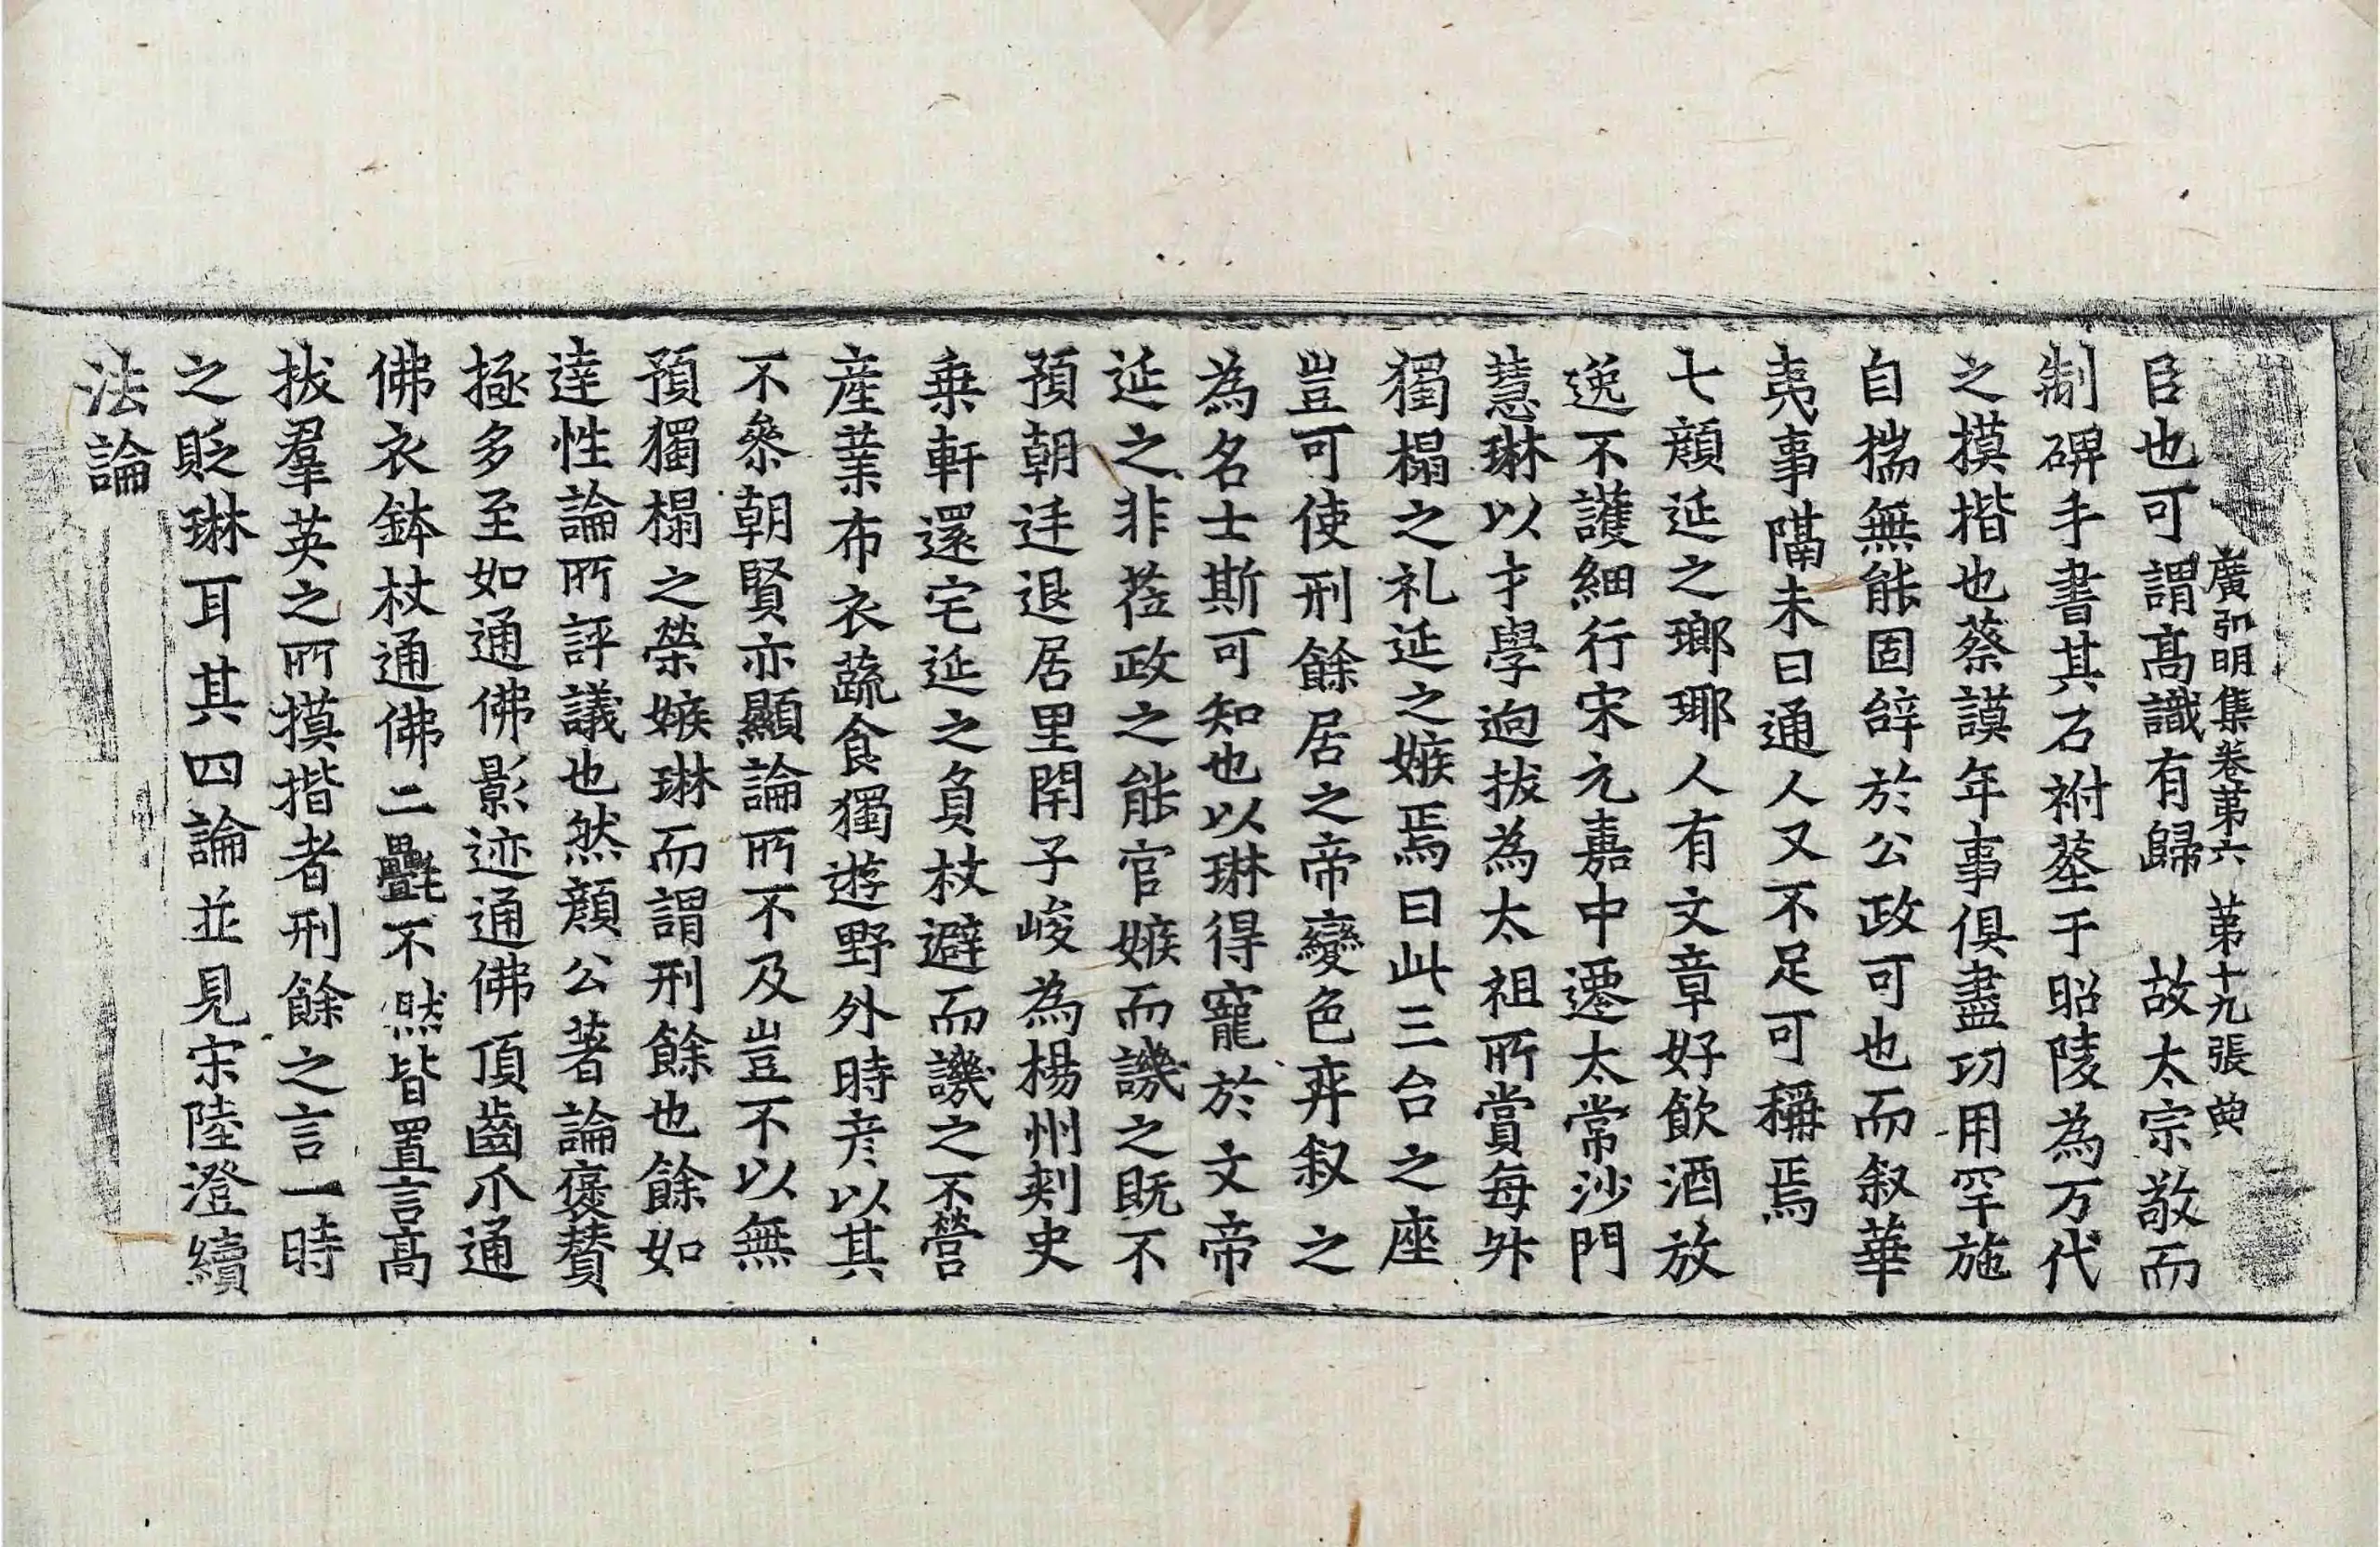 廣弘明集卷苐六　苐十九張　典
臣也可謂髙識有歸　故太宗敬而
制碑手書其石祔塟于昭陵為万代
之摸揩也蔡謨年事俱盡㓛用罕施
自揣無能固辝於公政可也而叙華
夷事隔未曰通人又不足可稱焉
七顔延之瑯瑘人有文章好飲酒放
逸不護細行宋元嘉中遷太常沙門
慧琳以才學逈拔為太祖所賞每升
獨榻之礼延之嫉焉曰此三台之座
豈可使刑餘居之帝變色弃叙之
為名士斯可知也以琳得寵於文帝
延之非莅政之能官嫉而譏之既不
預朝廷退居里閈子峻為楊州刾史
乗軒還宅延之負杖避而譏之不營
産業布衣蔬食獨遊野外時彦以其
不叅朝賢亦顯論所不及豈不以無
預獨榻之榮嫉琳而謂刑餘也餘如
達性論所評議也然顔公著論褒賛
極多至如通佛影迹通佛頂齒爪通
佛衣鉢杖通佛二㲲不然皆置言髙
拔羣英之所摸揩者刑餘之言一時
之貶琳耳其四論並見宋陸澄續
法論